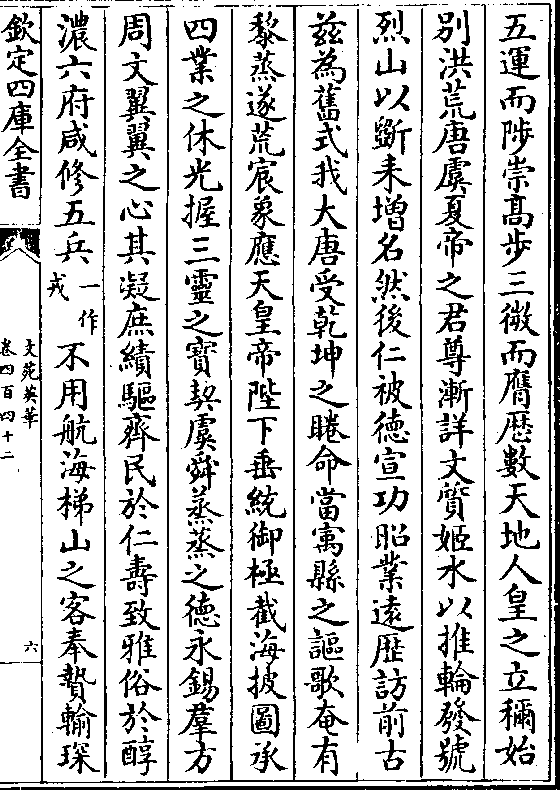 五運而陟崇髙步三微而膺歴數天地人皇之立稱始
別洪荒唐虞夏帝之君尊漸詳文質姬水以推輪發號
烈山以斷耒增名然後仁被德宣功昭業逺歴訪前古
兹為舊式我大唐受乾坤之睠命當㝢縣之謳歌奄有
黎蒸遂荒宸象應天皇帝陛下垂統御極截海披圖承
四業之休光握三靈之寳契虞舜蒸蒸之德永錫羣方
周文翼翼之心其凝庶績驅齊民於仁夀致雅俗於醇
濃六府咸修五兵一作戎不用航海梯山之客奉贄輸琛
欽定四庫全書
文苑英華
卷四百四十二
六